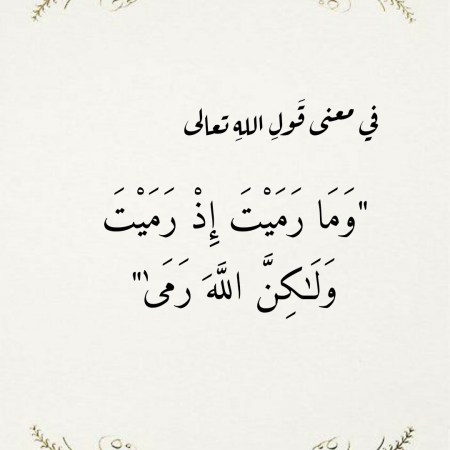 في معنى قَولِ اللهِ تعالى
"وَمَا رَمَيْتَ إِذْ رَمَيْتَ
وَلَٰكِنَّ اللَّهَ رَمَىٰ"